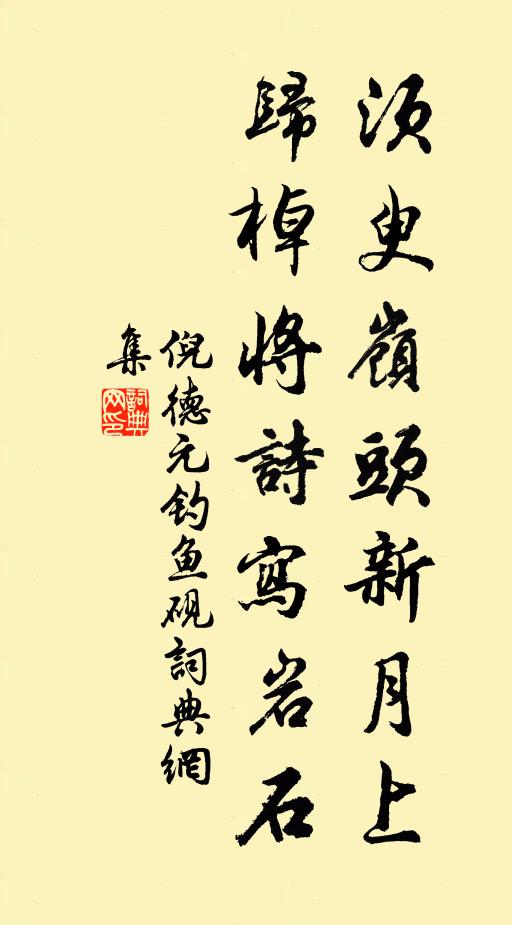 須臾嶺頭新月上
歸棹將詩寫岩石
倪德元钓鱼砚詞典網
集
詞典网印